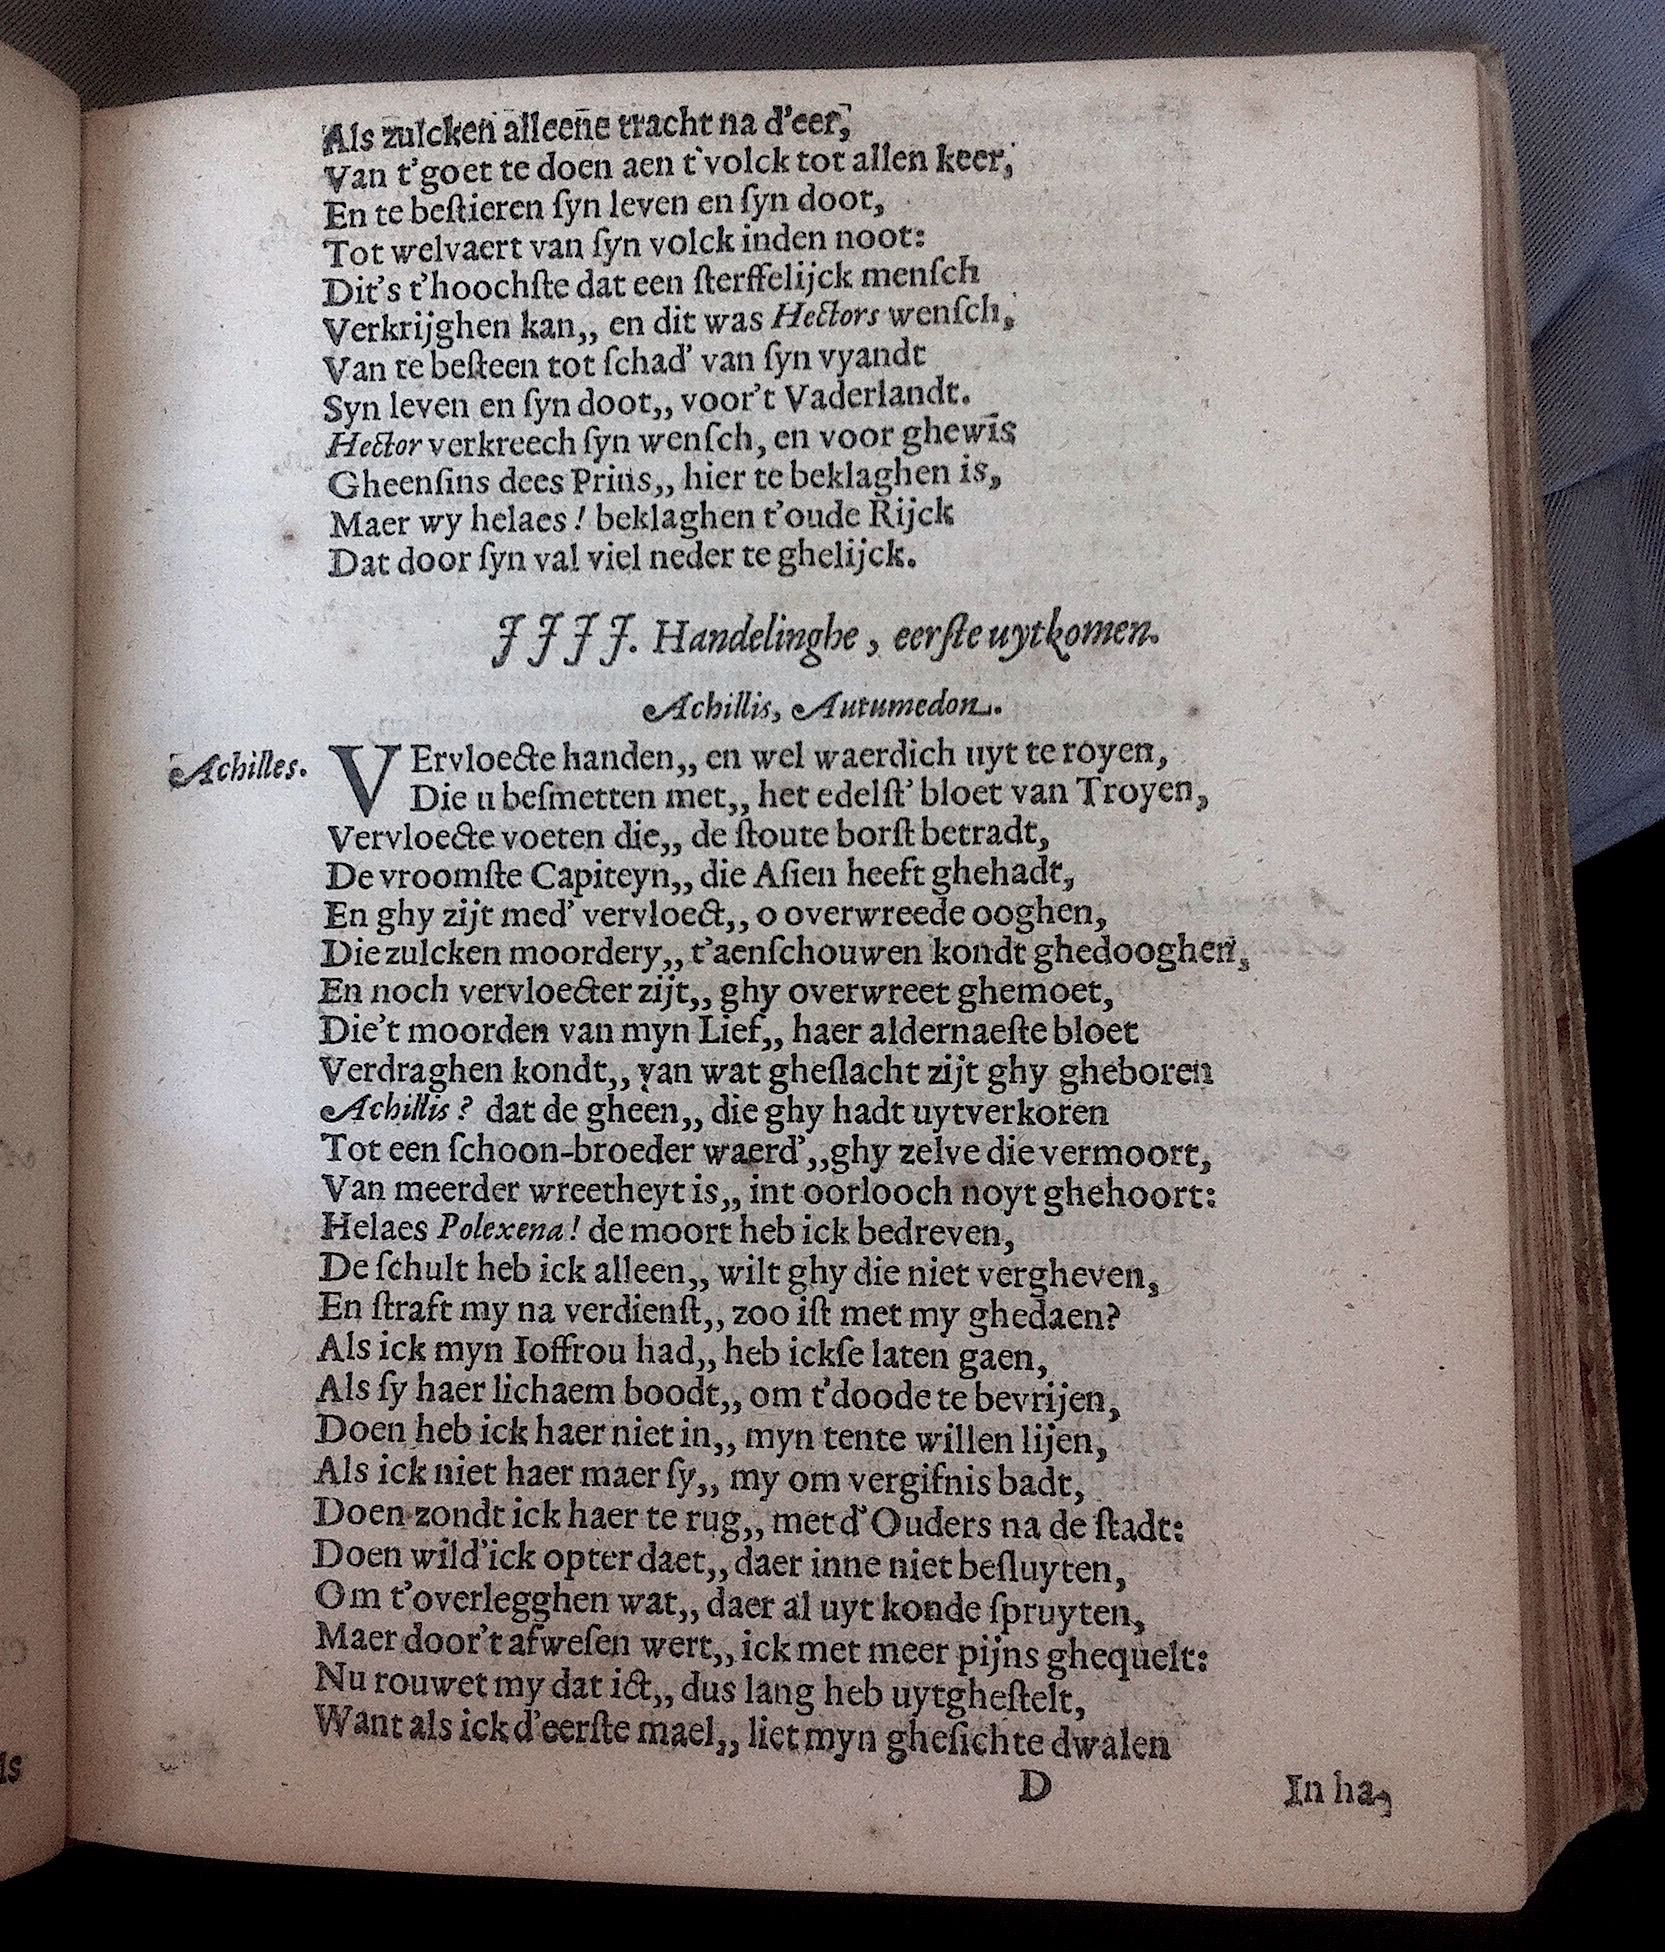 Als zulcken alleene tracht na d'eer,
Van t'goet te doen aen t'volck tot allen keer,
En te beſtieren ſyn leven en ſyn doot,
Tot welvaert van ſyn volck inden noot:
Dit's t'hoochſte dat een ſterffelijck menſch
Verkrijghen kan,, en dit was Hectors wenſch,
Van te beſteen tot ſchad' van ſyn vyandt
Syn leven en ſyn doot,, voor't Vaderlandt.
Hector verkreech ſyn wenſch, en voor ghewis
Gheenſins dees Prins,, hier te beklaghen is,
Maer wy helaes! beklaghen t'oude Rijck
Dat door ſyn val viel neder te ghelijck.
IIII. Handelinghe, eerſte uytkomen.
Achillis, Autumedon.
Achilles. VErvloecte handen,, en wel waerdich uyt te royen,
Die u beſmetten met,, het edelſt' bloet van Troyen,
Vervloecte voeten die,, de ſtoute borſt betradt,
De vroomſte Capiteyn,, die Aſien heeft ghehadt,
En ghy zijt med' vervloect,, o overwreede ooghen,
Die zulcken moordery,, t'aenſchouwen kondt ghedooghen,
En noch vervloecter zijt,, ghy overwreet ghemoet,
Die't moorden van myn Lief,, haer aldernaeſte bloet
Verdraghen kondt,, van wat gheſlacht zijt ghy gheboren
Achillis? dat de gheen,, die ghy hadt uytverkoren
Tot een ſchoon-broeder waerd',,ghy zelve die vermoort,
Van meerder wreetheyt is,, int oorlooch noyt ghehoort:
Helaes Polexena! de moort heb ick bedreven,
De ſchult heb ick alleen,, wilt ghy die niet vergheven,
En ſtraft my na verdienſt,, zoo iſt met my ghedaen?
Als ick myn Ioffrou had,, heb ickſe laten gaen,
Als ſy haer lichaem boodt,, om t'doode te bevrijen,
Doen heb ick haer niet in,, myn tente willen lijen,
Als ick niet haer maer ſy,, my om vergifnis badt,
Doen zondt ick haer te rug,, met d'Ouders na de ſtadt:
Doen wild'ick opter daet,, daer inne niet beſluyten,
Om t'overlegghen wat,, daer al uyt konde ſpruyten,
Maer door't afweſen wert,, ick met meer pijns ghequelt:
Nu rouwet my dat ict,, dus lang heb uytgheſtelt,
Want als ick d'eerſte mael,, liet myn gheſichte dwalen
D In ha,